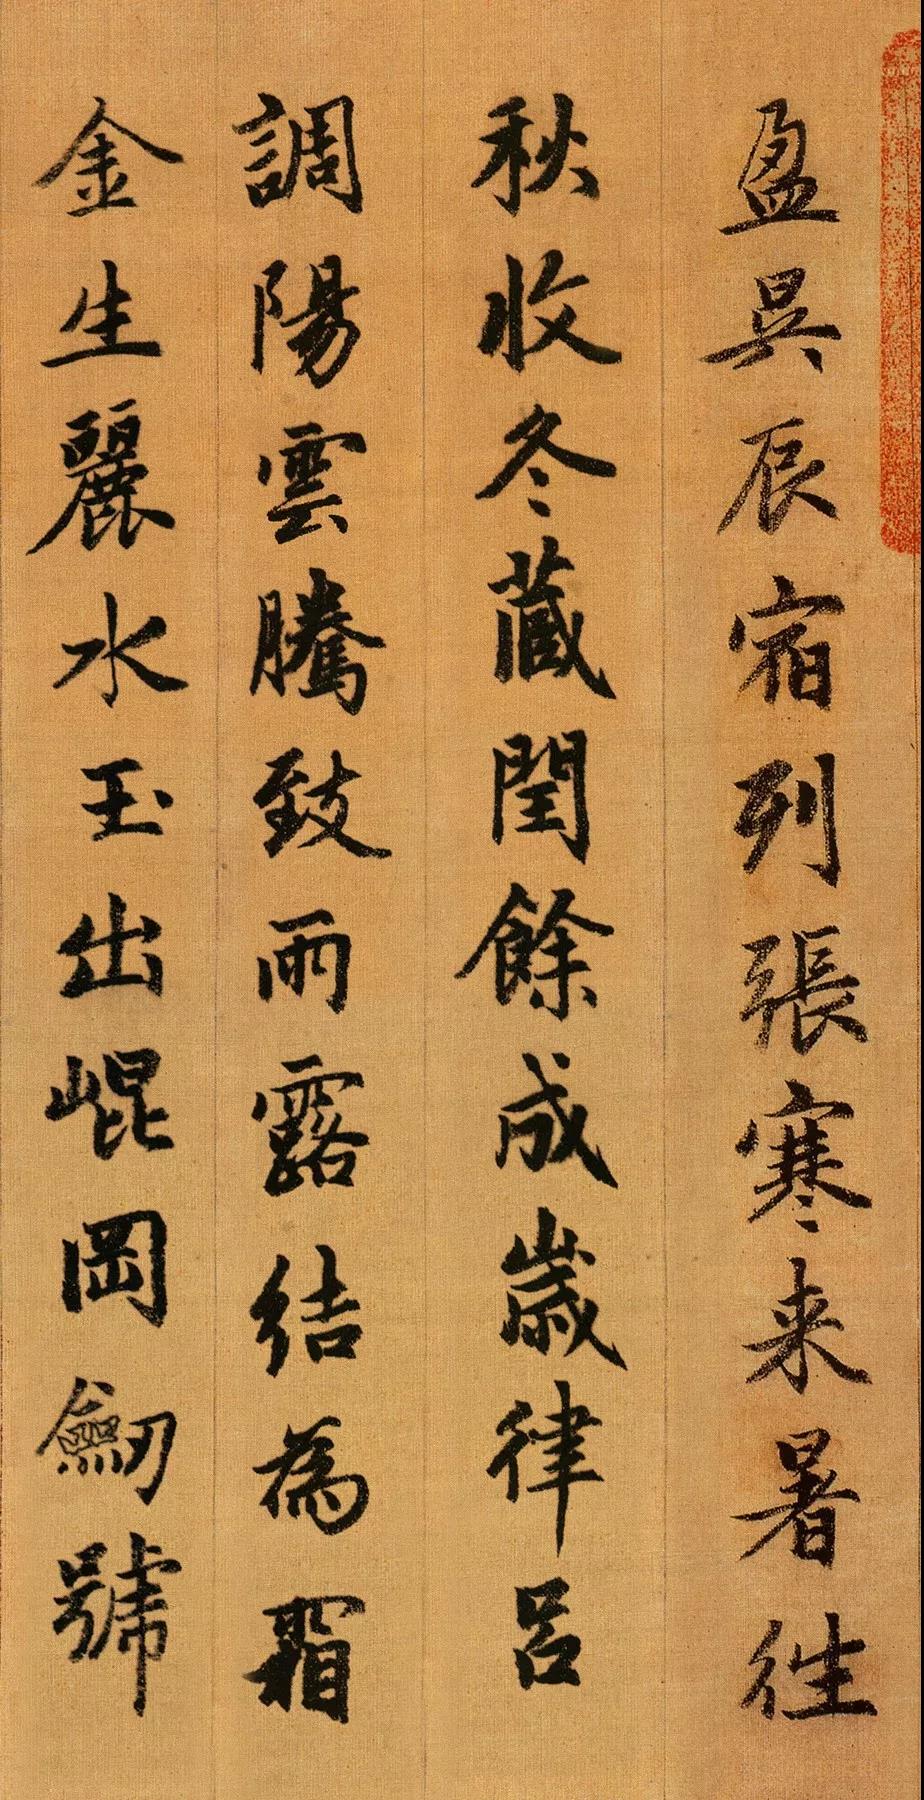 盈昃辰宿列張寒来暑徃
秋收冬蔵閏餘成歲律呂
調陽雲騰致雨露結為霜
金生麗水玉出崐岡劒號